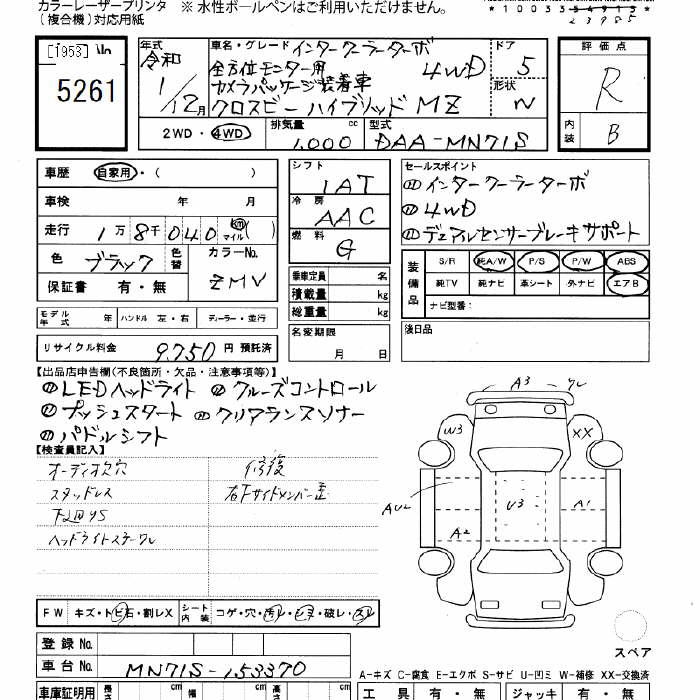 カラーレーザープリンタ ※ 水性ボールペンはご利用いただけません。
(複合機)対応用紙
[1953]
5261
年式 令和 1/12月
車名・グレード インタークーラーターボ
全方位モニター用 4WD
カメラパッケージ装着車
クロスビー ハイブリッド MZ
ドア 5
形状 N
評価点 R
内装 B
2WD・4WD
排気量 1,000 cc
型式 DAA-MN71S
車歴 自家用・( )
車検 年 月
走行 1万8千040 km マイル( )
色 ブラック 色替 カラーNo. ZMV
保証書 有・無
シフト 1AT
冷房 AAC
燃料 G
乗車定員 名
積載量 kg
総重量 kg
セールスポイント
インタークーラーターボ
4WD
デュアルセンサーブレーキサポート
装備品 S/R 純A/W P/S P/W ABS
純TV 純ナビ 革シート 外ナビ エアB
ナビ型番:
モデル年式 年 ハンドル 左・右 ディーラー・並行
名変期限 月 日
後日品
リサイクル料金 9,750 円 預託済
【出品店申告欄(不良箇所・欠品・注意事項等)】
LEDヘッドライト クルーズコントロール
プッシュスタート クリアランスソナー
パドルシフト
【検査員記入】
オーディオ欠穴 修復
スタッドレス 右下サイドメンバー歪
下廻りS
ヘッドライトスケール
A3
W3 XX
U3 A1
A2
スペア
FW キズ・トビ石・割レX シート内装 コゲ・穴・汚レ・シミ・破レ・スレ
登録No.
車台No. MN71S-153370
A-キズ C-腐食 E-エクボ S-サビ U-凹ミ W-補修 XX-交換済
車庫証明用 長さ cm 幅 cm 高さ cm
工具 有・無 ジャッキ 有・無